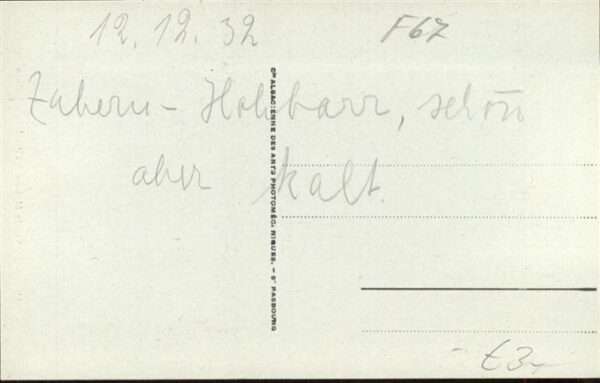 12.12.32
F67
Zabern - Hohbarr, schön
aber kalt.
Cie ALSACIENNE DES ARTS PHOTOMÉC. NIQUES. - STRASBOURG
- £3-